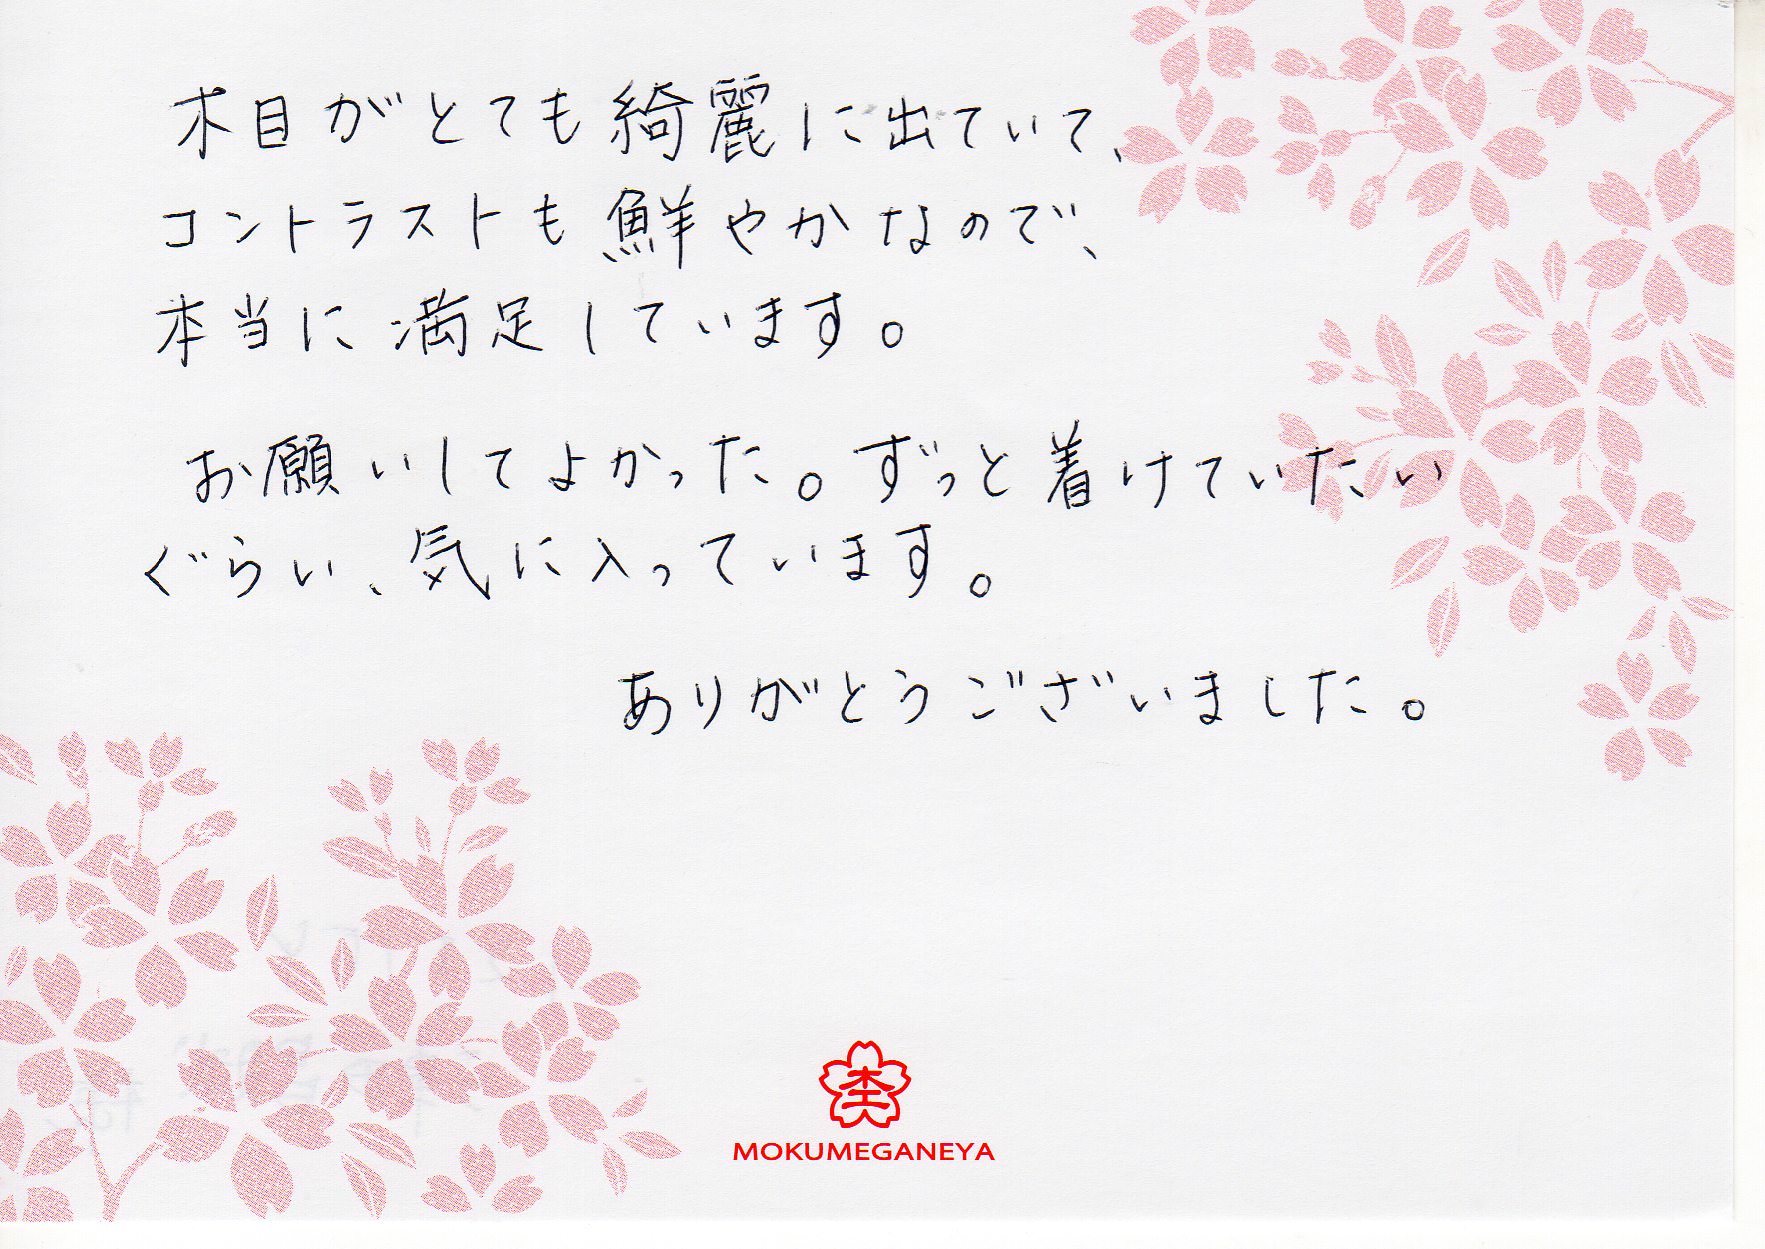 木目がとても綺麗に出ていて、
コントラストも鮮やかなので、
本当に満足しています。
お願いしてよかった。ずっと着けていたい
ぐらい、気に入っています。
ありがとうございました。
MOKUMEGANEYA